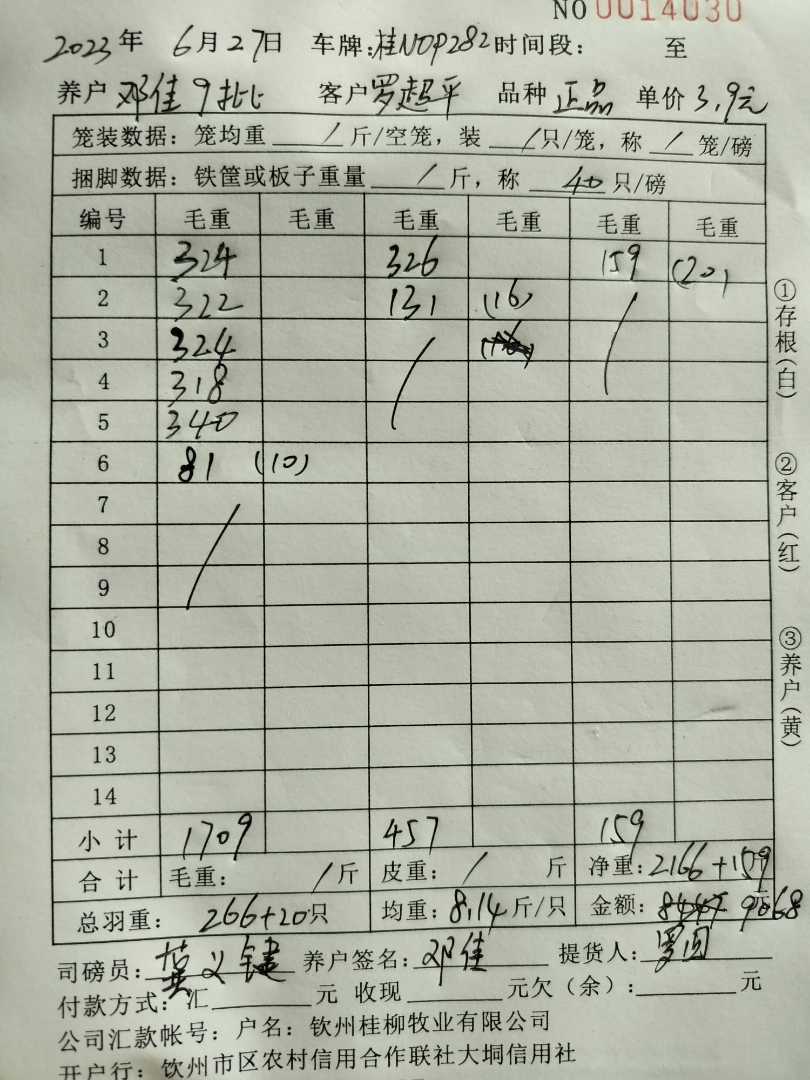 NO 0014030
2023年 6月27日 车牌:桂N0P282 时间段: 至
养户 邓佳9批 客户 罗超平 品种 正品 单价 3.9元
笼装数据: 笼均重 / 斤/空笼, 装 / 只/笼, 称 / 笼/磅
捆脚数据: 铁筐或板子重量 / 斤, 称 40 只/磅
编号 毛重 毛重 毛重 毛重 毛重 毛重
1 324 326 159 (20)
2 322 131 (16) /
3 324 /
4 318
5 340
6 81 (10)
7 /
8
9
10
11
12
13
14
小计 1709 457 159
合计 毛重: / 斤 皮重: / 斤 净重: 2166+159
总羽重: 266+20只 均重: 8.14斤/只 金额: 9068
司磅员: 龚义键 养户签名: 邓佳 提货人: 罗圆
付款方式: 汇 元 收现 元欠(余): 元
公司汇款帐号: 户名: 钦州桂柳牧业有限公司
开户行: 钦州市区农村信用合作联社大垌信用社
①存根(白)
②客户(红)
③养户(黄)